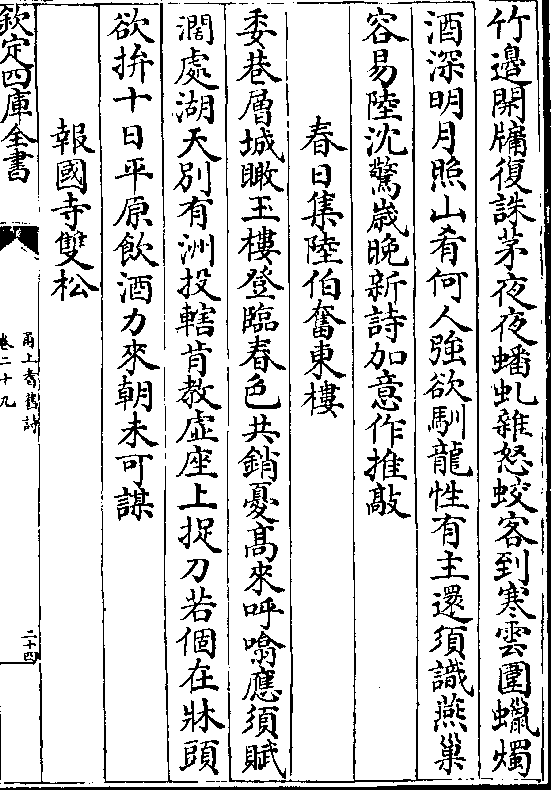 竹邊開牖復誅茅夜夜蟠虬雜怒蛟客到寒雲圍蠟燭
酒深明月照山肴何人強欲馴龍性有主還須識燕巢
容易陸沈驚歲晩新詩加意作推敲
春日集陸伯奮東樓
委巷層城瞰玉樓登臨春色共銷憂髙來呼噏應須賦
濶處湖天別有洲投轄肯教虚座上捉刀若個在牀頭
欲拚十日平原飲酒力來朝未可謀
報國寺雙松
欽定四庫全書
甬上耆舊詩
卷二十九
二十四